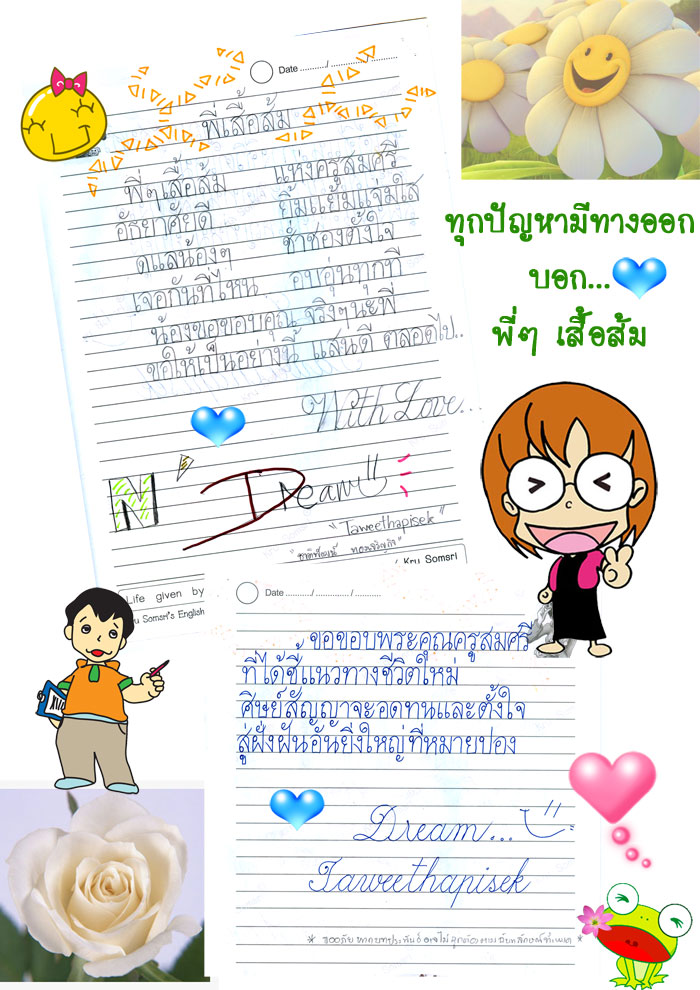 Date ........../............./...........
พี่เสื้อส้ม
พี่ๆเสื้อส้ม แห่งครูสมศรี
อัธยาศัยดี ยิ้มแย้มแจ่มใส
ดูแลน้องๆ ช่ำชองตั้งใจ
เจอกันที่ไหน อบอุ่นทุกที
น้องขอขอบคุณ จริงๆนะพี่
ขอให้เป็นอย่างนี้ แสนดี ตลอดไป..
With Love...
N' Dream
"Taweethapisek"
Life given by
Kru Somsri
Somsri's English
ทุกปัญหามีทางออก
บอก...
พี่ๆ เสื้อส้ม
Date ........./............./...........
ขอขอบพระคุณครูสมศรี
ที่ได้ชี้แนวทางชีวิตใหม่
ศิษย์สัญญาจะอดทนและตั้งใจ
สู่ฝั่งฝันอันยิ่งใหญ่ที่หมายปอง
Dream...
Taweethapisek